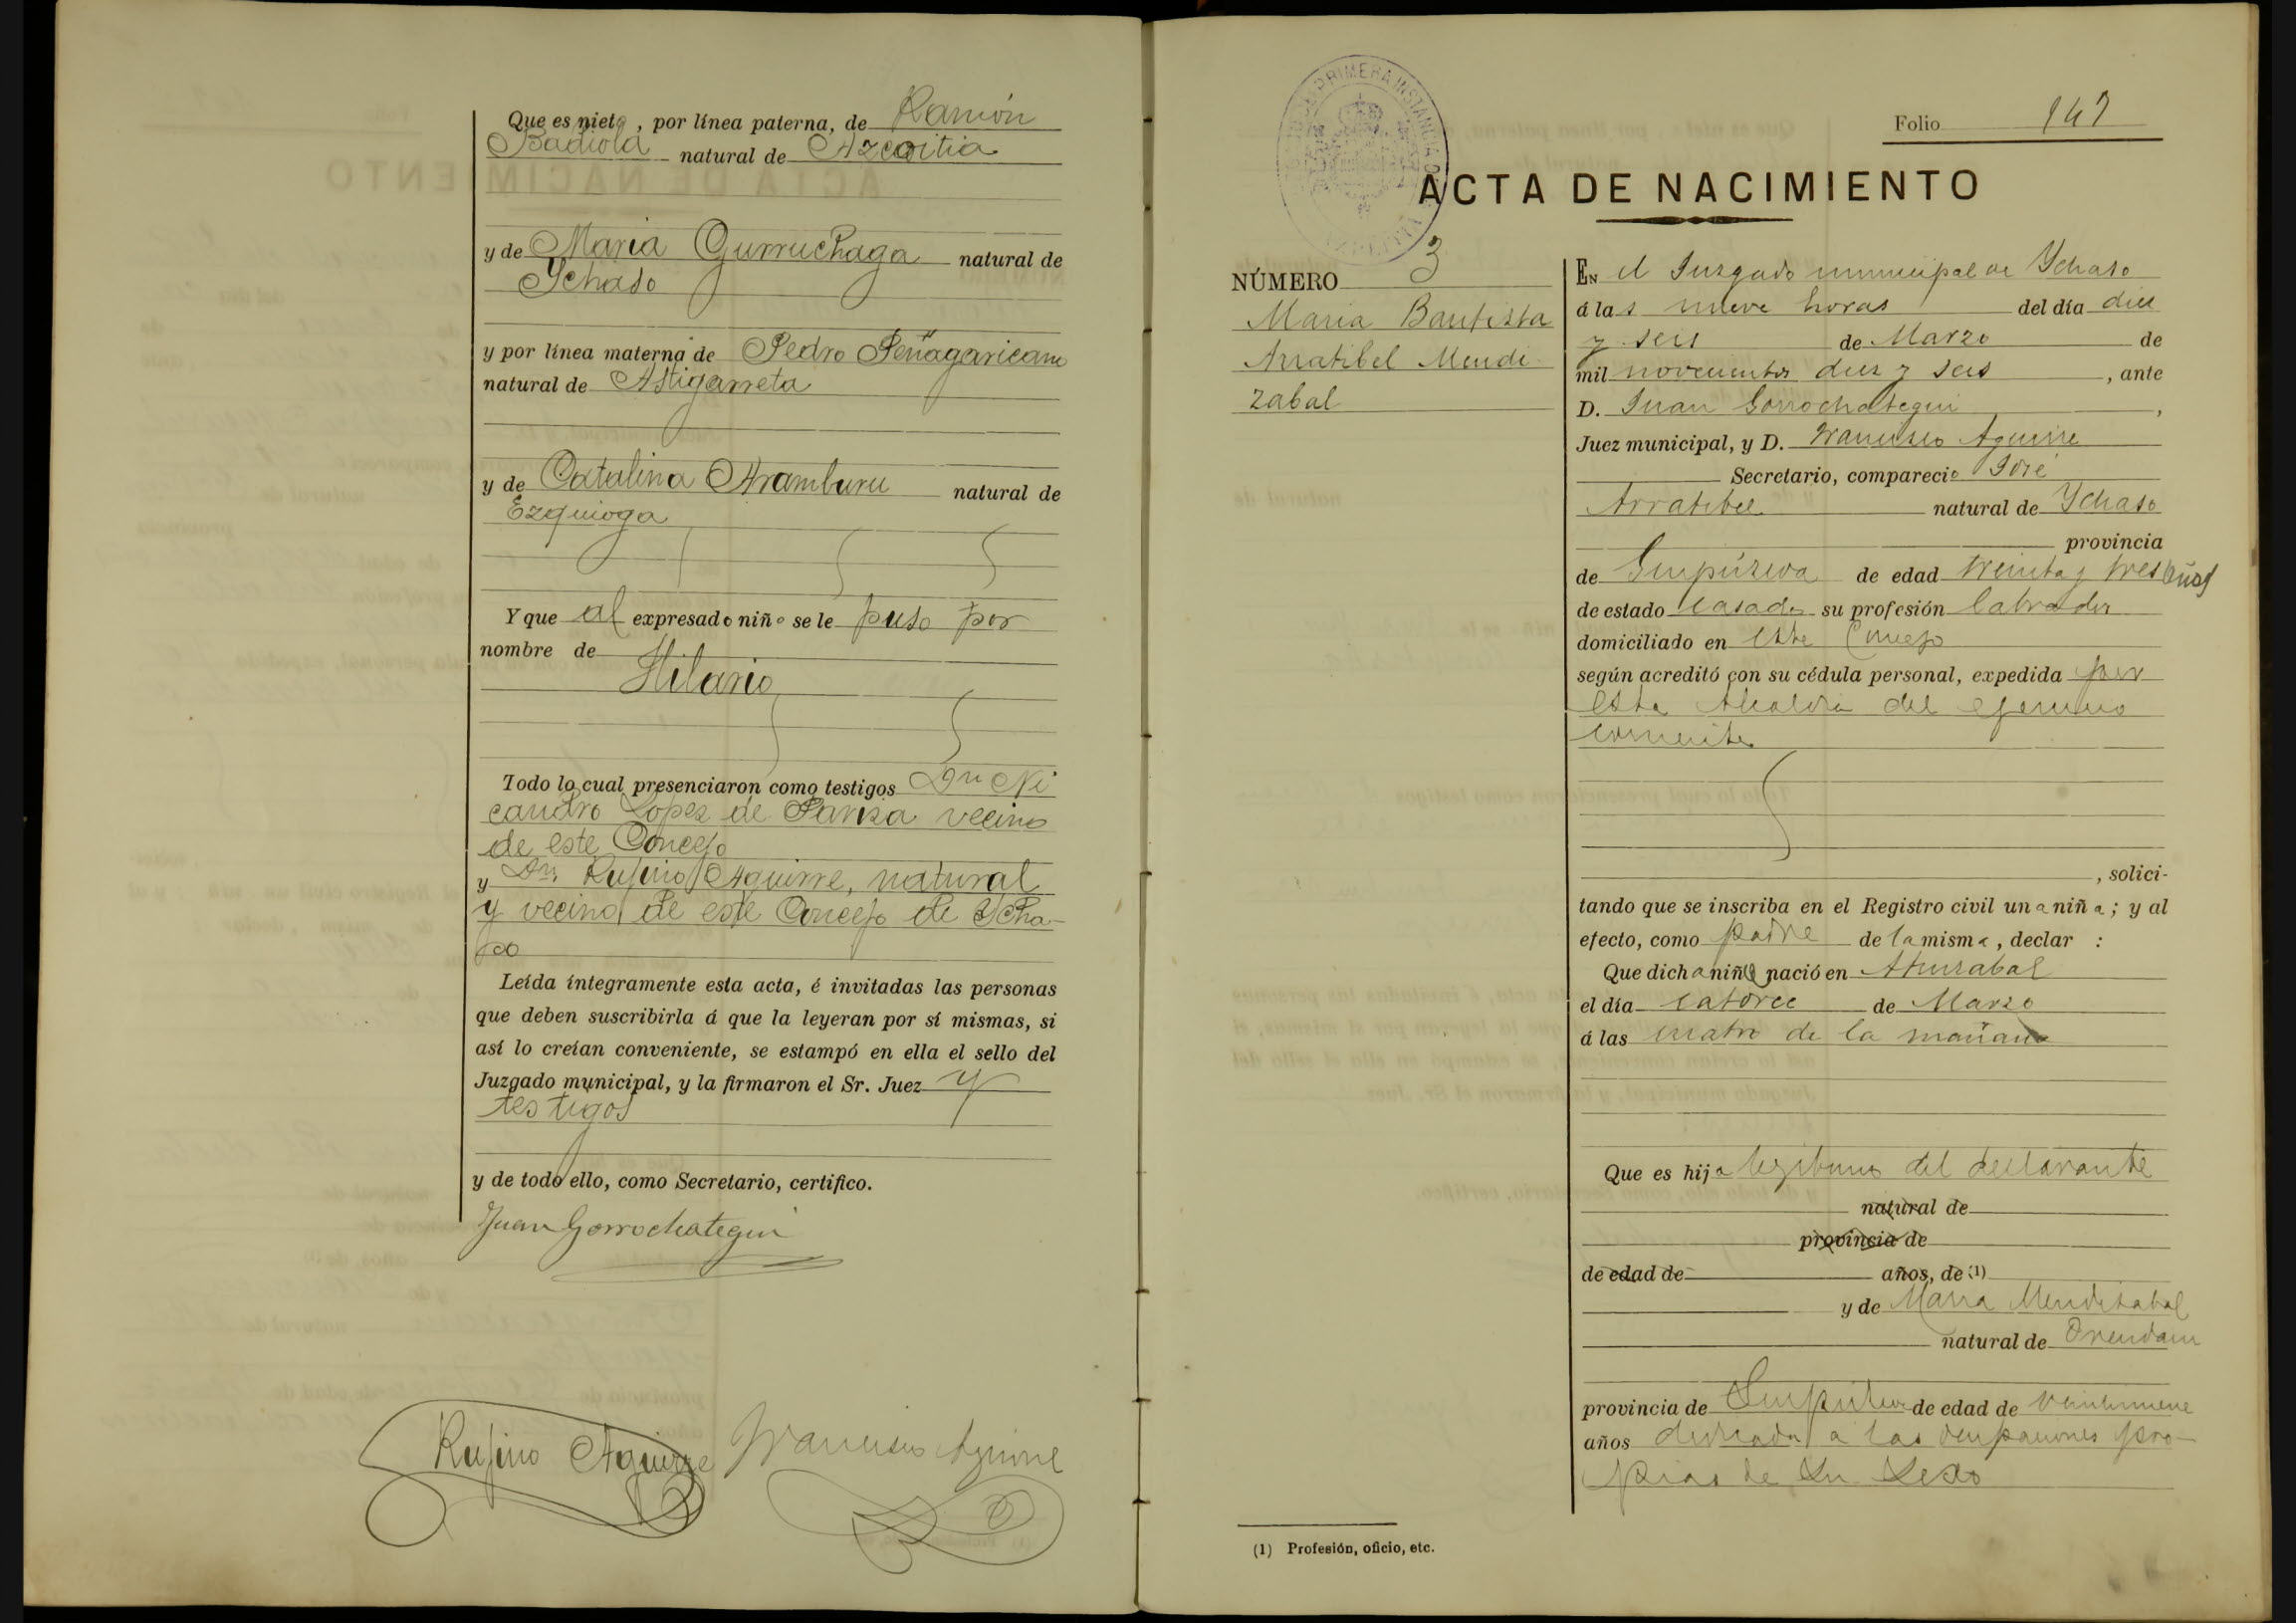 Que es nieto, por línea paterna, de Ramón
Badiola natural de Azcoitia
y de Maria Gurruchaga natural de
Ychaso
y por línea materna de Pedro Peñagaricano
natural de Astigarreta
y de Catalina Aramburu natural de
Ezquioga
Y que al expresado niño se le puso por
nombre de
Hilario
Todo lo cual presenciaron como testigos Dn Ni
candro Lopez de Pariza vecino
de este Concejo
y Dn. Rufino Aguirre, natural
y vecino de este Concejo de Ycha-
so
Leída íntegramente esta acta, é invitadas las personas
que deben suscribirla á que la leyeran por sí mismas, si
así lo creían conveniente, se estampó en ella el sello del
Juzgado municipal, y la firmaron el Sr. Juez y
testigos
y de todo ello, como Secretario, certifico.
Juan Gorrochategui
Rufino Aguirre Francisco Aguirre
PRIMERA INSTANCIA
Folio 147
ACTA DE NACIMIENTO
NÚMERO 3
Maria Bautista
Arratibel Mendi
zabal
EN el Juzgado municipal de Ychaso
á las nueve horas del día diez
y seis de Marzo de
mil novecientos diez y seis, ante
D. Juan Gorrochategui,
Juez municipal, y D. Francisco Aguirre
Secretario, compareció José
Arratibel natural de Ychaso
provincia
de Guipúzcoa de edad treinta y tres años
de estado casado su profesión labrador
domiciliado en este Concejo
según acreditó con su cédula personal, expedida por
esta Alcaldia del ejercicio
corriente
, solici-
tando que se inscriba en el Registro civil una niña; y al
efecto, como padre de la misma, declar :
Que dicha niña nació en
el día catorce de Marzo
á las cuatro de la mañana
Que es hija legitima del declarante
natural de
provincia de
de edad de años, de (1)
y de Maria Mendizabal
natural de Orendain
provincia de Guipúzcoa de edad de veintinueve
años dedicada a las ocupaciones pro-
pias de su sexo
(1) Profesión, oficio, etc.